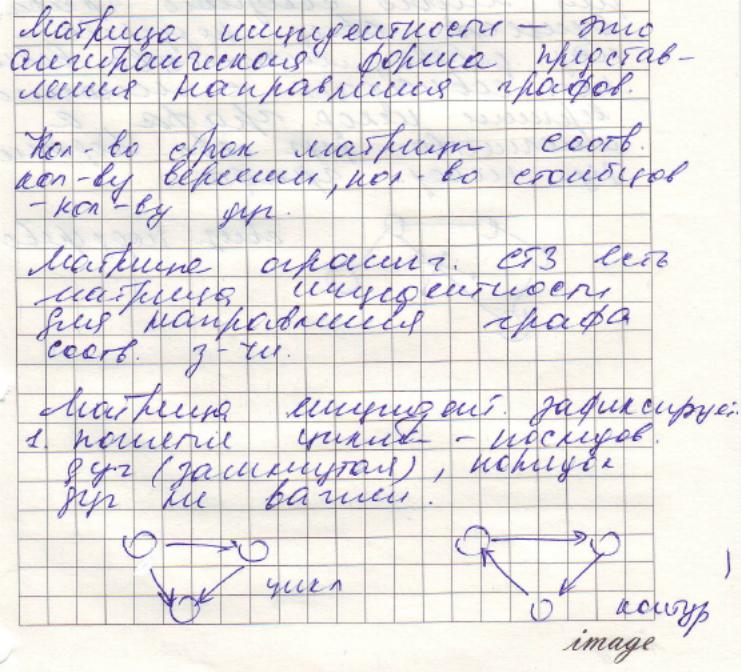 Матрица инцидентности — это
алгебраическая форма представ-
ления направления графов.
Кол-во строк матрицы соотв.
кол-ву вершин, кол-во столбцов
- кол-ву дуг.
Матрица огранич. СТЗ есть
матрица инцидентности
для направления графа
соотв. з-чи.
Матрица инцидент. зафиксирует.
1. понятие цикла - последов.
дуг (замкнутая), порядок
дуг не важен.
цикл
контур
image